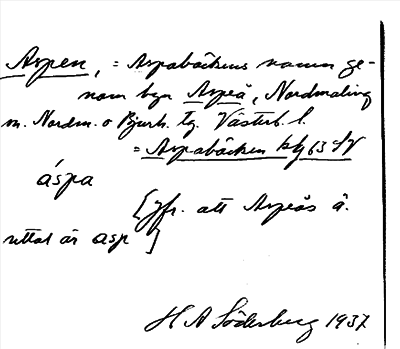 Aspen, = Aspabäckens namn ge-
nom byn Aspeå, Nordmaling
m. Nordm. o Bjurh. tg. Västerb. l.
= Aspabäcken kbl 63 SV
áspa
[jfr. att Aspeås ä.
uttal är asp ]
H A Söderberg 1937